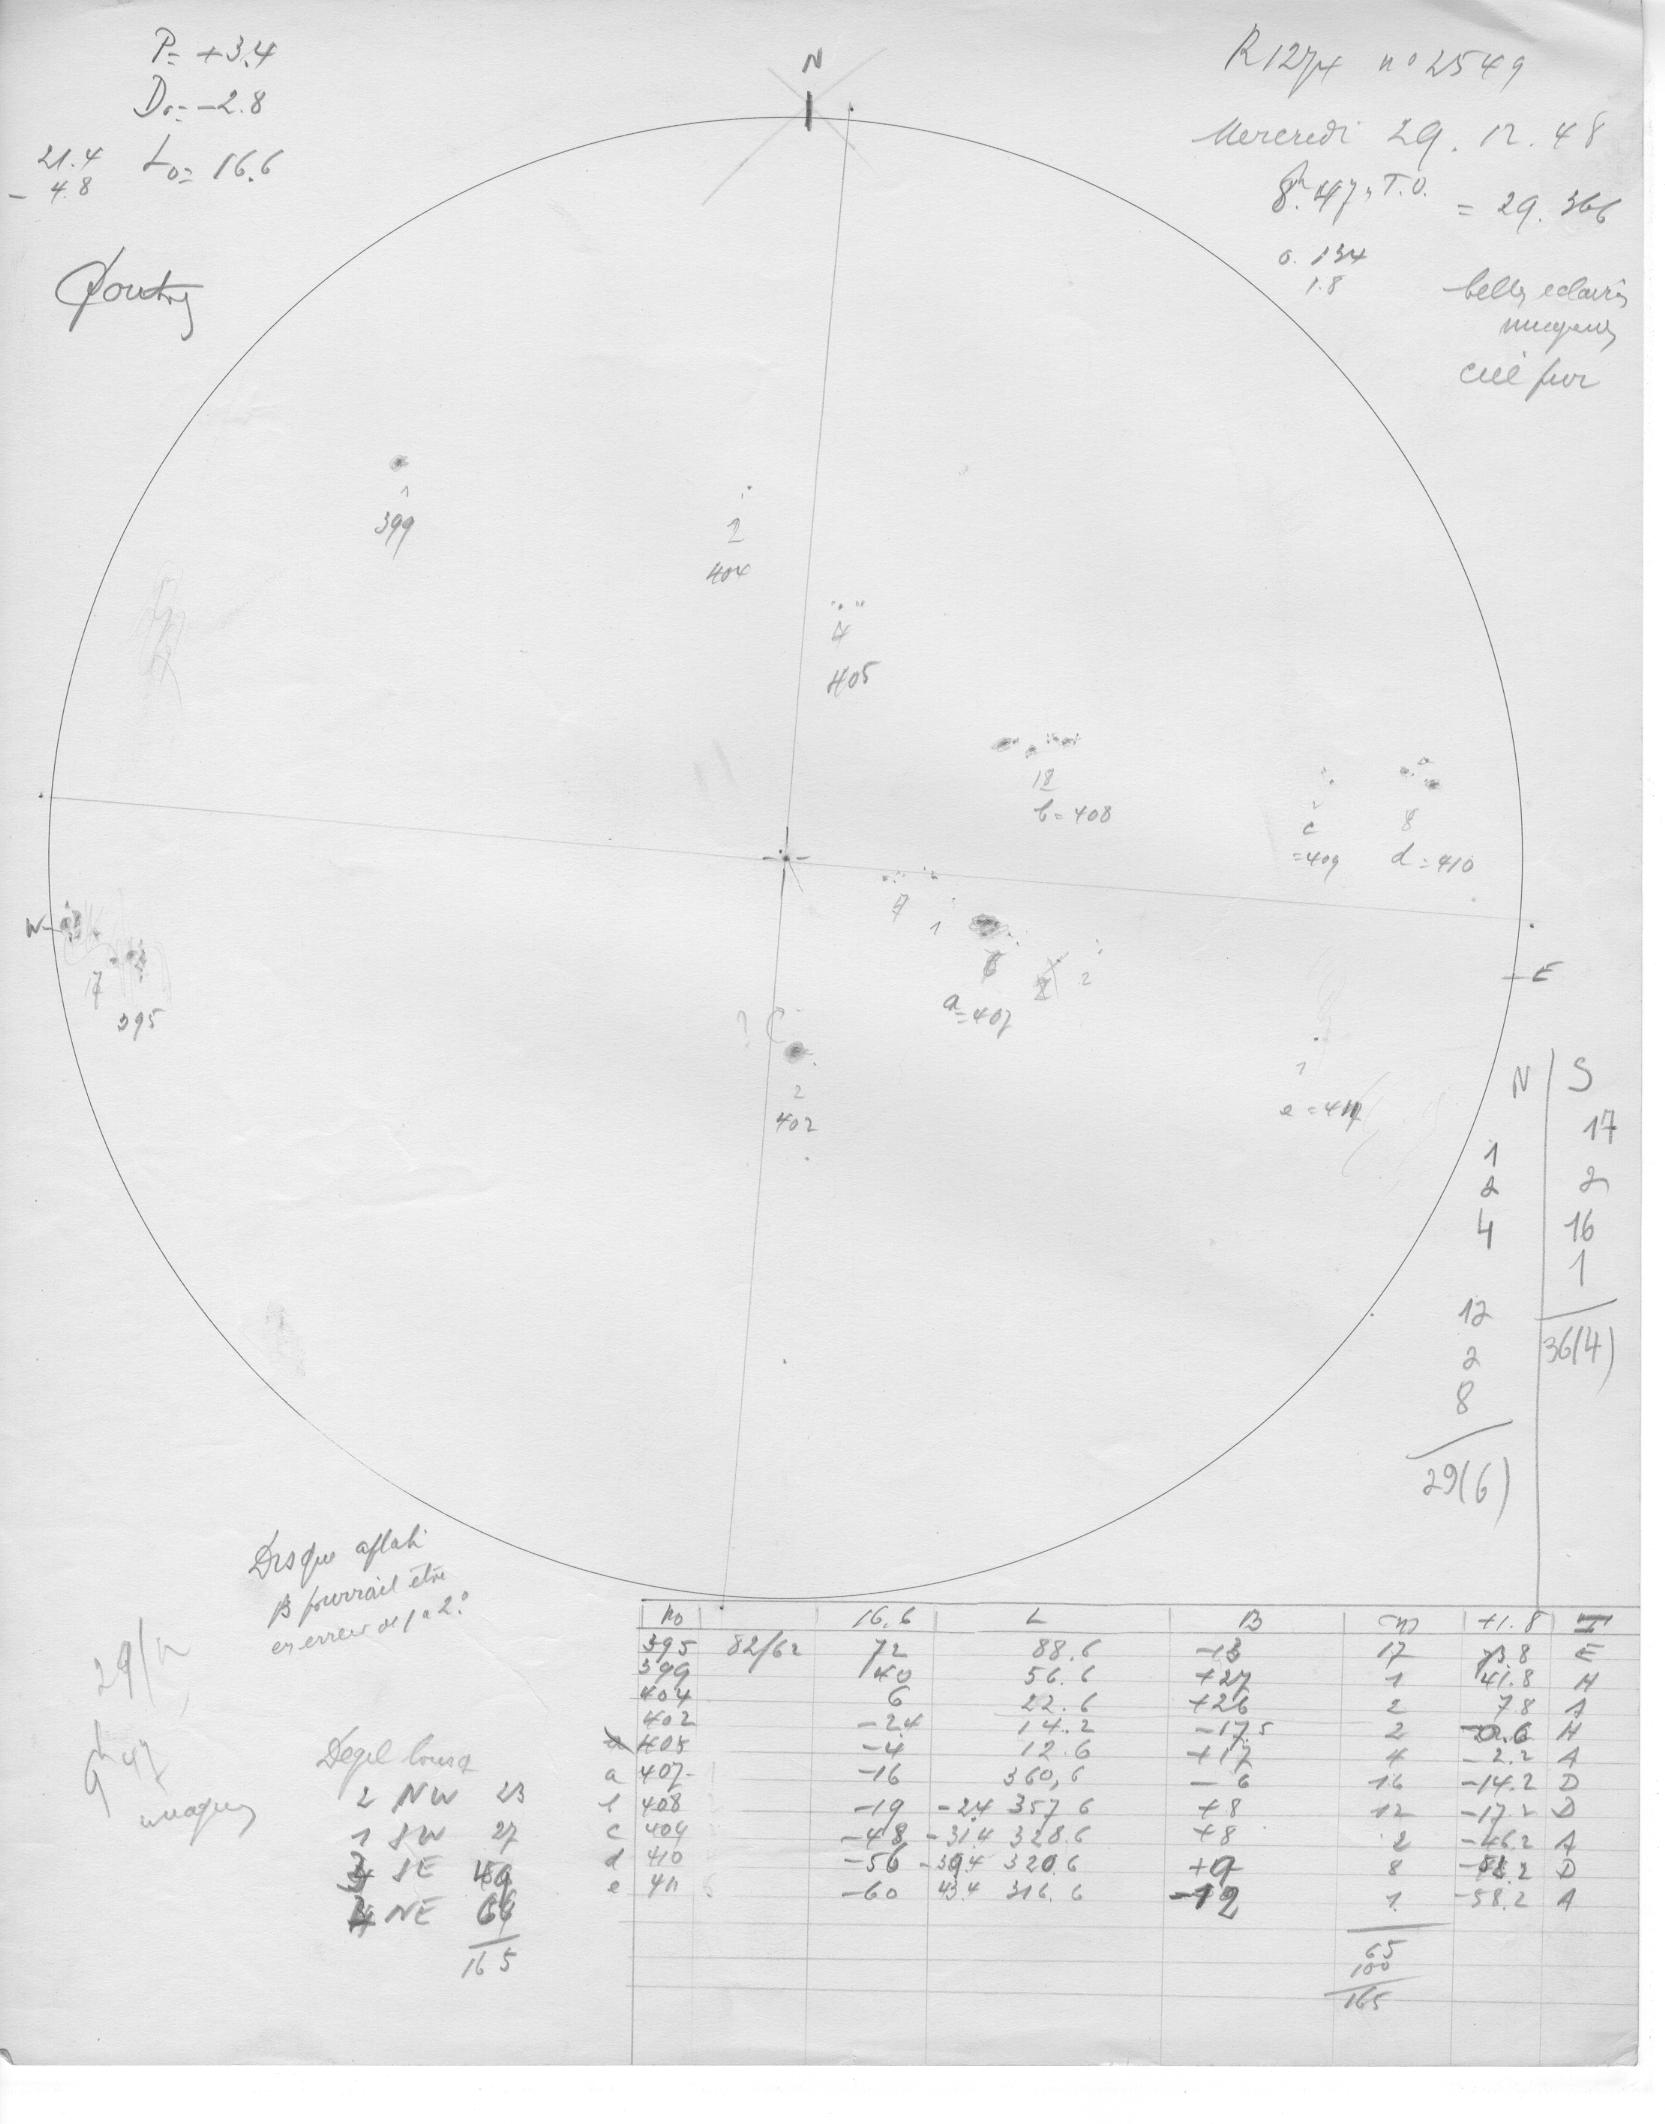 P= +3.4
Do= -2.8
21.4
- 4.8
Lo= 16.6
N
no 2549
Mercredi 29.12.48
= 29.366
0.134
1.8
belles eclaircies
nuageux
ciel pur
1
399
2
404
4
405
12
b=408
c
=409
8
d=410
W
7
1
17
395
a=407
2
E
2
402
1
N S
17
1
2 2
4 16
1
12
36(4)
2
8
29(6)
Disque aplati
B pourrait être
en erreur de 1 à 2°
9h47
nuageux
2 NW 23
1 SW 27
SE
NE
165
No 16.6 L B +1.8
395 82/62 72 88.6 -13 17 73.8 E
399 40 56.6 +27 1 41.8 H
404 6 22.6 +26 2 7.8 A
402 -2.4 14.2 -17.5 2 -0.6 H
405 -4 12.6 +17 4 -2.2 A
a 407 -16 360,6 -6 16 -14.2 D
408 -19 -24 357.6 +8 12 -17.2 D
c 409 -48 -31.4 328.6 +8 2 -46.2 A
d 410 -56 -39.4 320.6 +9 8 D
e 411 -60 43.4 316.6 -12 1 -58.2 A
65
100
165